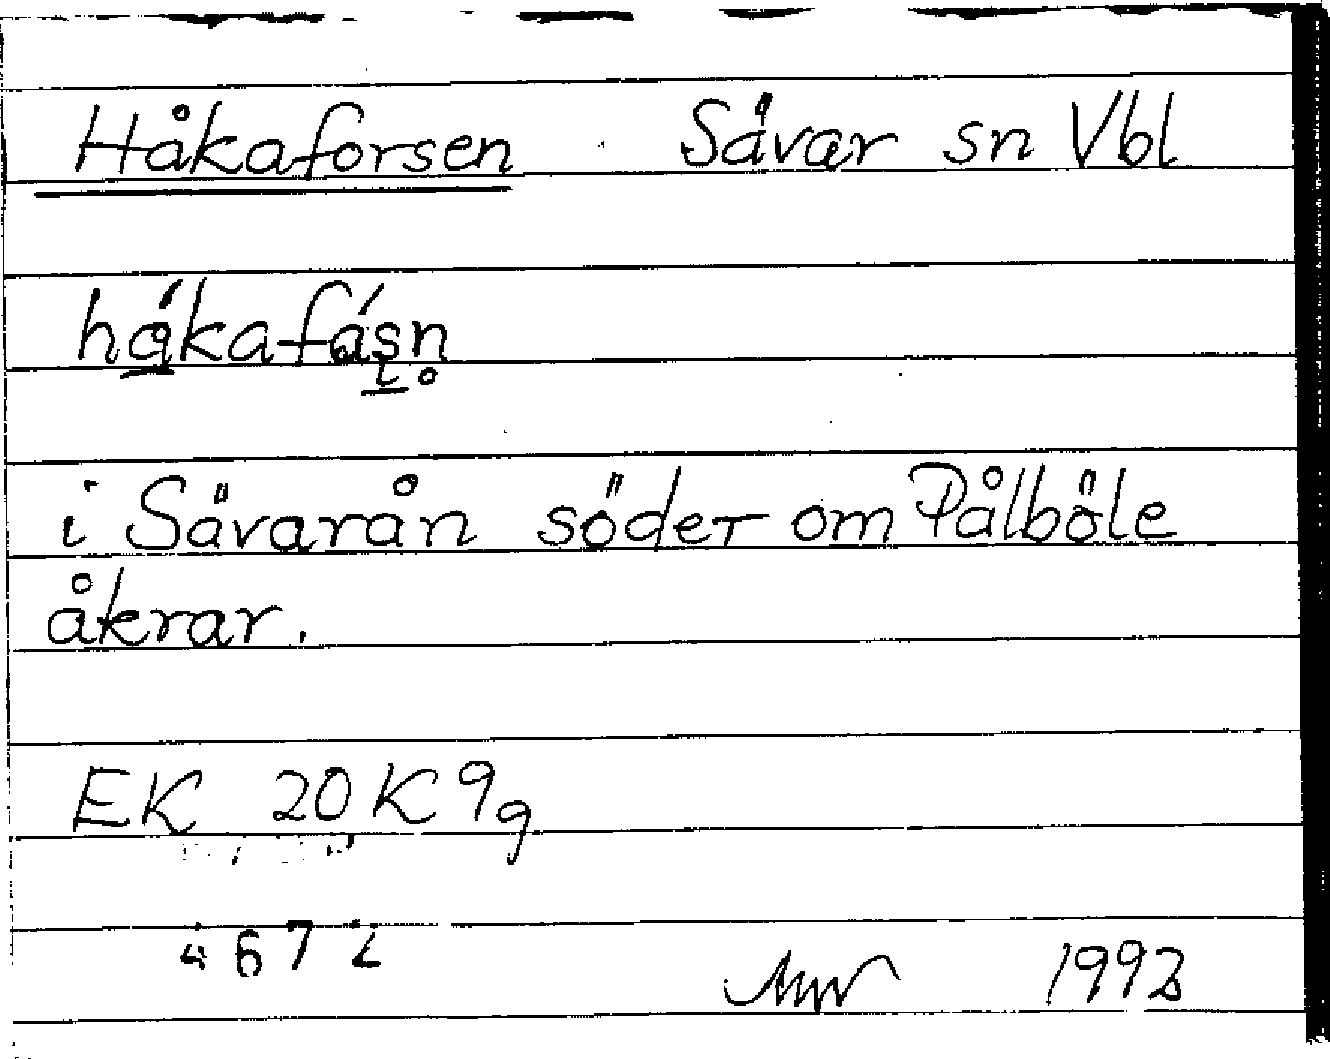 Håkaforsen Sävar sn Vbl
håkafásn
i Sävarån söder om Pålböle
åkrar.
EK 20K 9g